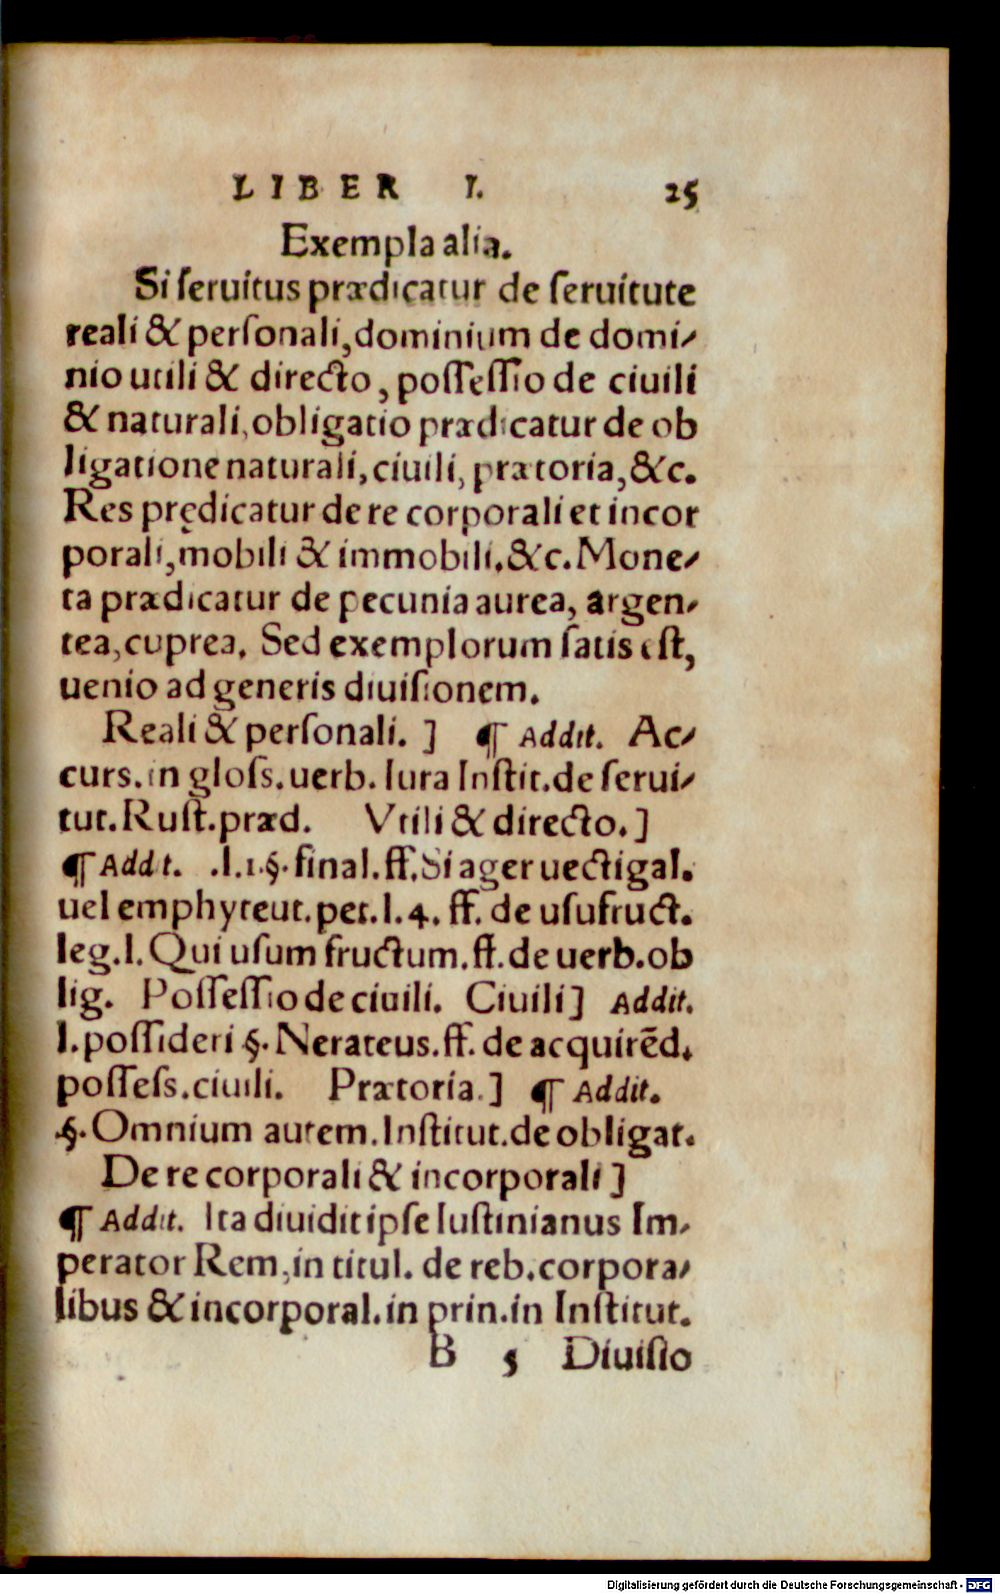 LIBER I. 25
Exempla alia.
Si ſeruitus prædicatur de ſeruitute
reali & perſonali, dominium de domi-
nio utili & directo, poſſeſſio de ciuili
& naturali, obligatio prædicatur de ob
ligatione naturali, ciuili, prætoria, &c.
Res prędicatur de re corporali et incor
porali, mobili & immobili, &c. Mone-
ta prædicatur de pecunia aurea, argen-
tea, cuprea. Sed exemplorum ſatis eſt,
uenio ad generis diuiſionem.
Reali & perſonali. ] ¶ Addit. Ac-
curs. in gloſs. uerb. Iura Inſtit. de ſerui-
tut. Ruſt. præd. Vtili & directo. ]
¶ Addit. .l.1.§. final. ff. Si ager uectigal.
uel emphyteut. pet. l. 4. ff. de uſufruct.
leg. l. Qui uſum fructum. ff. de uerb. ob
lig. Poſſeſſio de ciuili. Ciuili ] Addit.
l. poſſideri §. Nerateus. ff. de acquirēd.
poſſeſs. ciuili. Prætoria. ] ¶ Addit.
§. Omnium autem. Inſtitut. de obligat.
De re corporali & incorporali ]
¶ Addit. Ita diuidit ipſe Iuſtinianus Im-
perator Rem, in titul. de reb. corpora-
libus & incorporal. in prin. in Inſtitut.
B 5 Diuiſio
Digitalisierung gefördert durch die Deutsche Forschungsgemeinschaft - DFG